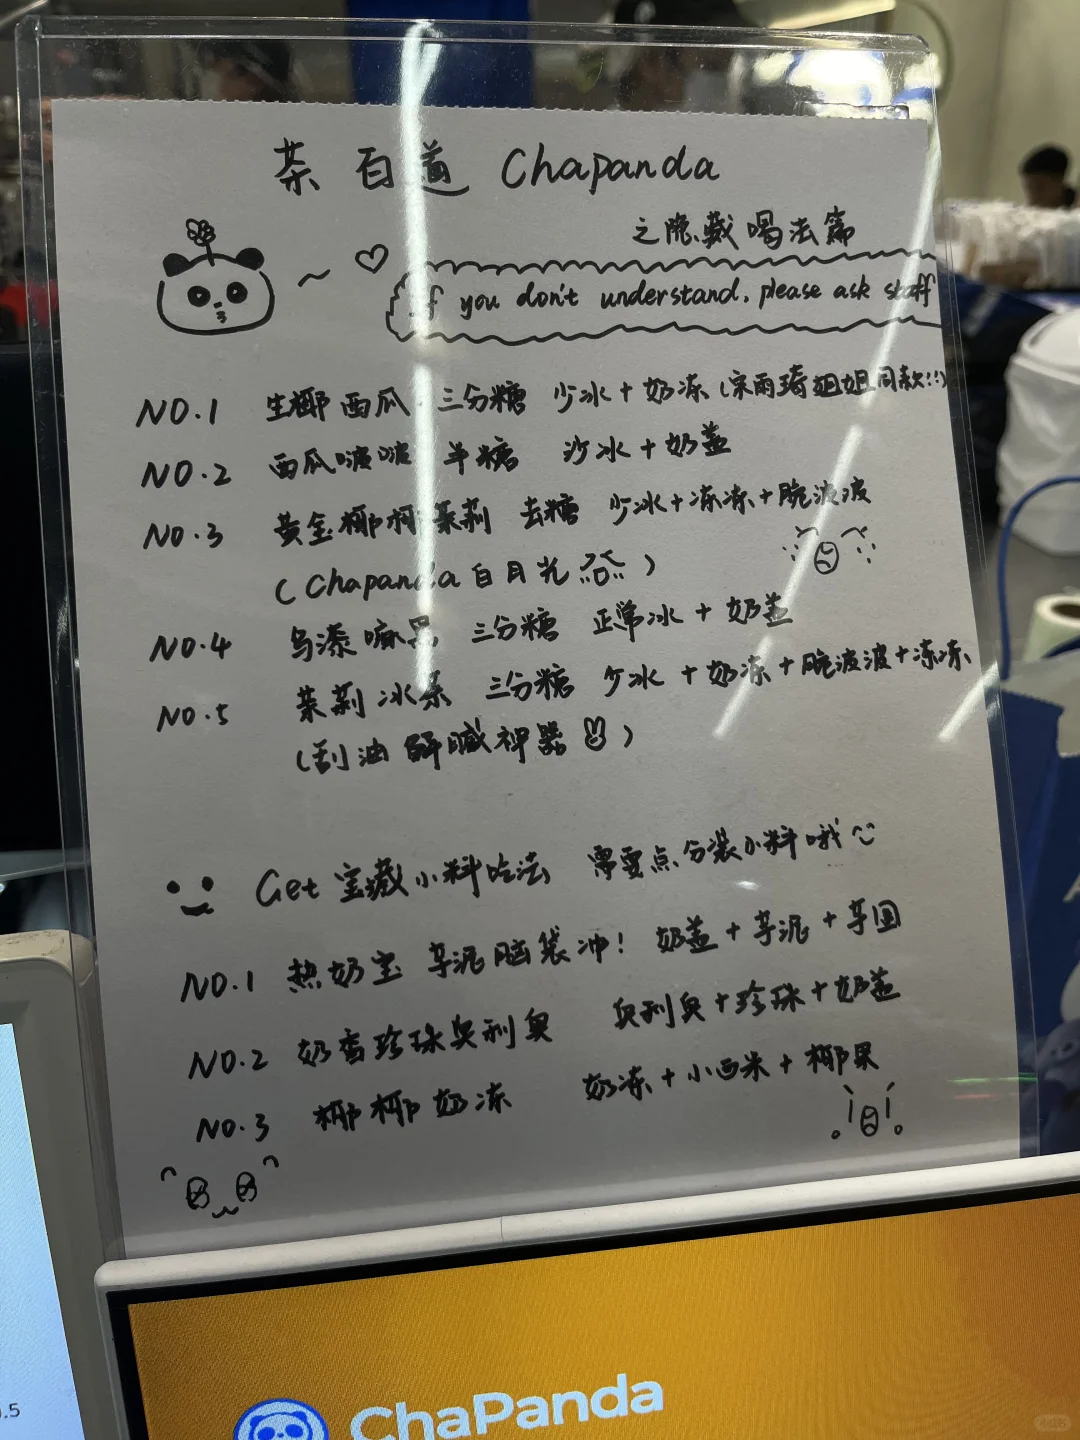 茶百道 Chapanda
之隐藏喝法篇
If you don't understand, please ask staff
NO.1 生椰西瓜 三分糖 少冰+奶冻(宋雨琦姐姐同款!!)
NO.2 西瓜啵啵 半糖 沙冰+奶盖
NO.3 黄金椰椰茉莉 去糖 少冰+冻冻+脆波波
(Chapanda白月光)
NO.4 乌漆嘛黑 三分糖 正常冰+奶盖
NO.5 茉莉冰茶 三分糖 少冰+奶冻+脆波波+冻冻
(刮油解腻神器)
Get宝藏小料吃法 需要点分装小料哦
NO.1 热奶宝 芋泥脑袋冲! 奶盖+芋泥+芋圆
NO.2 奶香珍珠奥利奥 奥利奥+珍珠+奶盖
NO.3 椰椰奶冻 奶冻+小西米+椰果
ChaPanda
.5